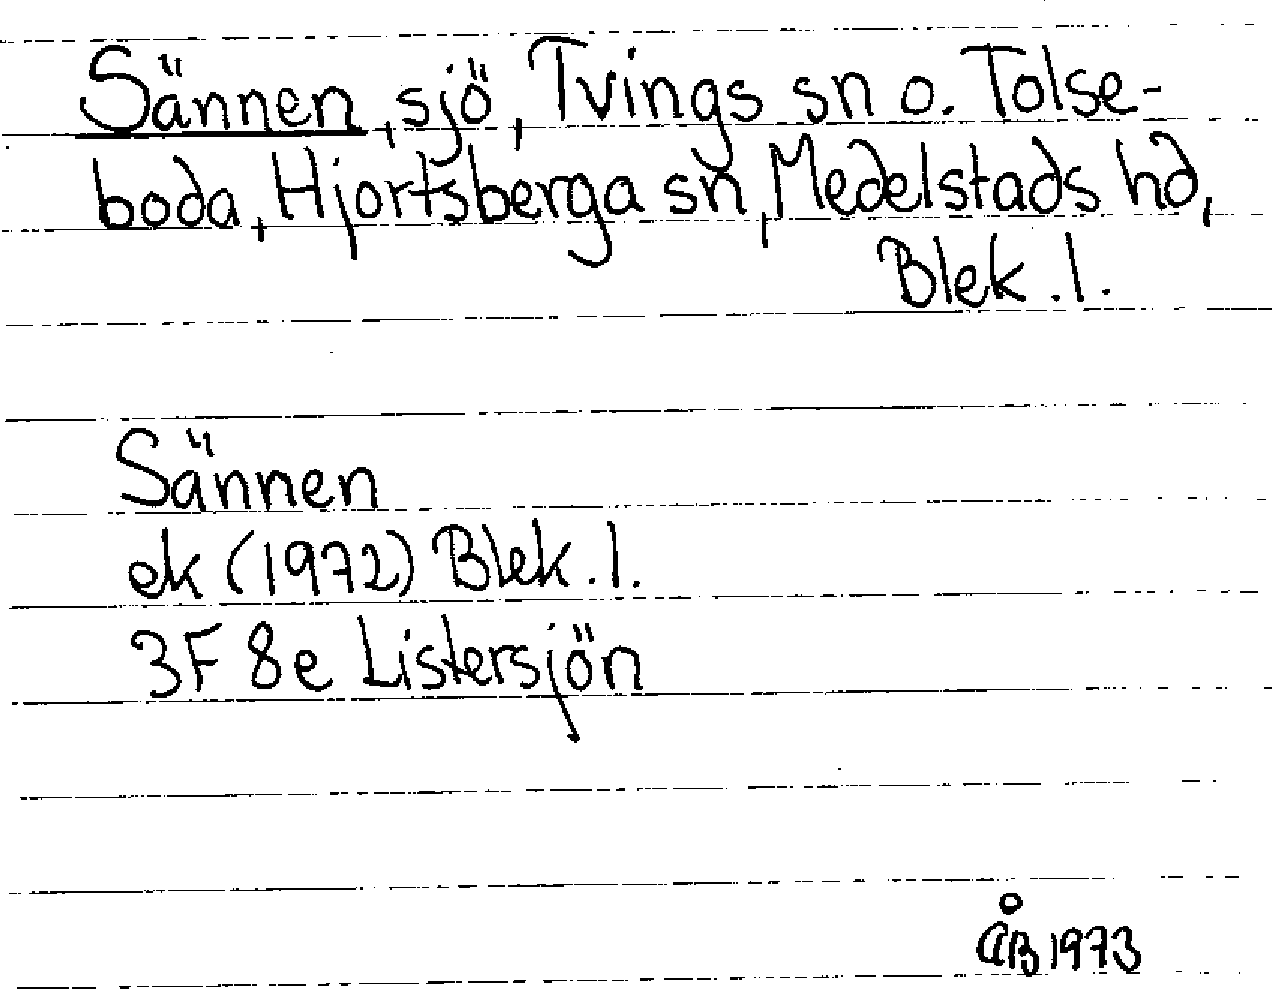 Sännen, sjö, Tvings sn o. Tolse-
boda, Hjortsberga sn, Medelstads hd,
Blek. l.
Sännen
ek (1972) Blek. l.
3F 8e Listersjön
ÅB 1973